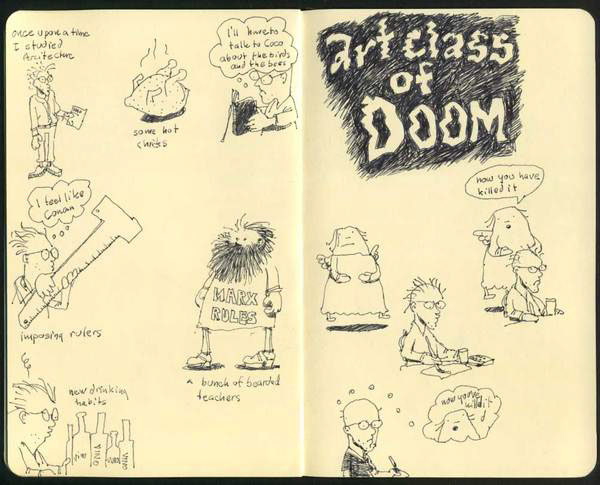 once upon a time
I studied
Arcitecture
some hot
chicks
I'll have to
talk to Coco
about the birds
and the bees
I feel like
Conan
imposing rulers
MARX
RULES
a bunch of bearded
teachers
new drinking
habits
VINO
VINO
art class
of
DOOM
now you have
killed it
now you've
killed it